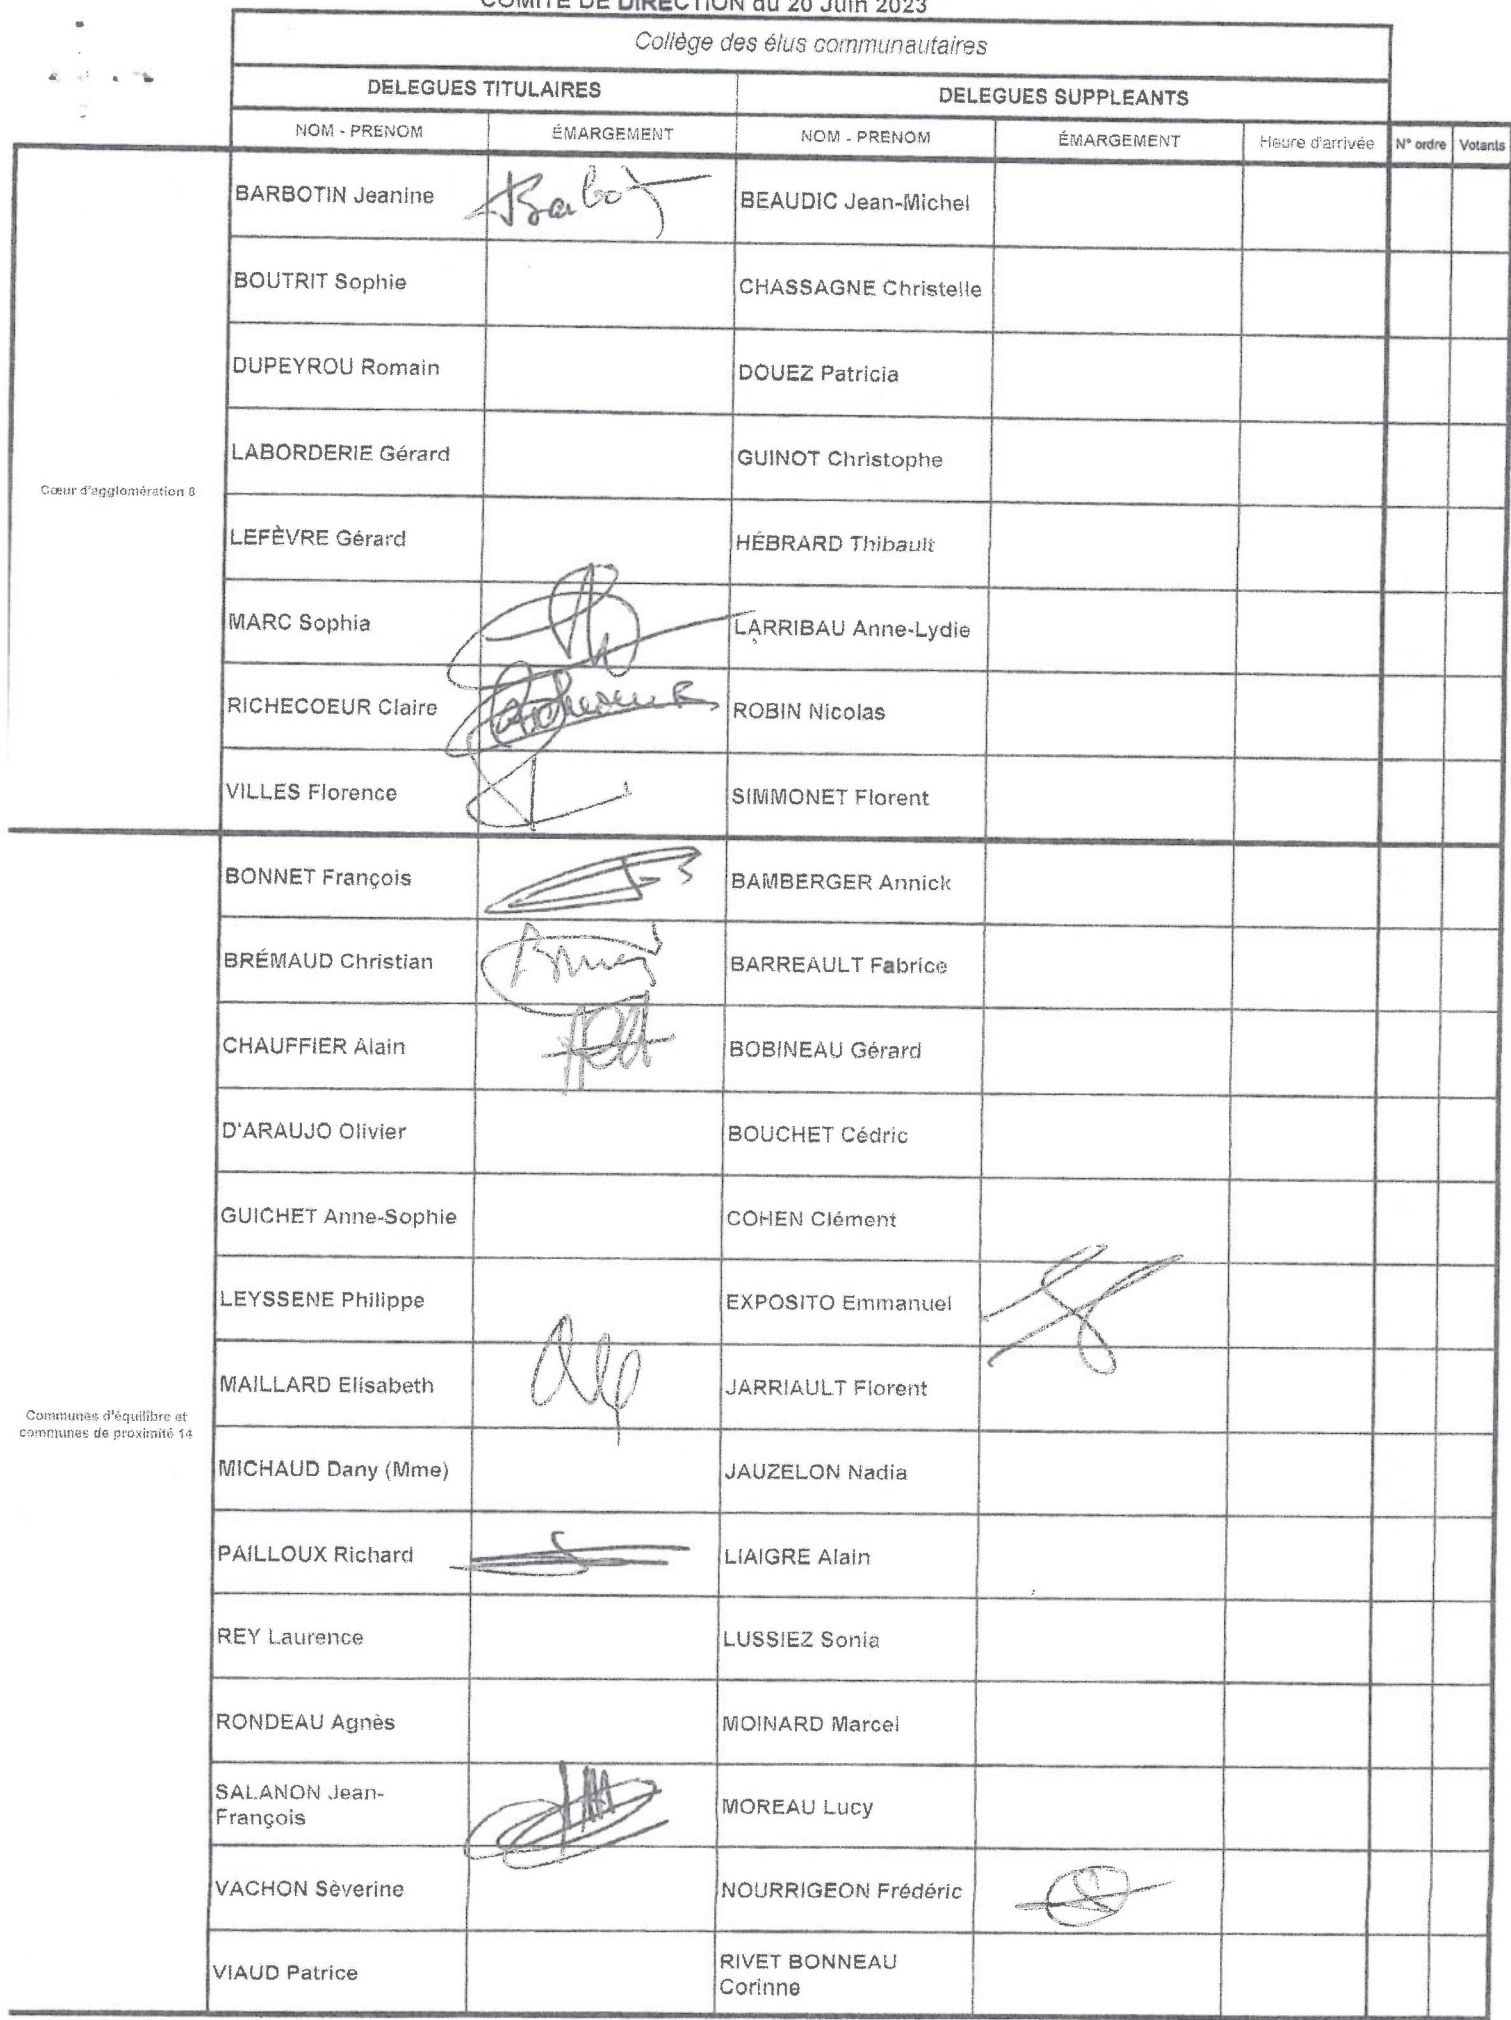 COMITE DE DIRECTION du 20 Juin 2023
Collège des élus communautaires
DELEGUES TITULAIRES DELEGUES SUPPLEANTS
NOM - PRENOM ÉMARGEMENT NOM - PRENOM ÉMARGEMENT Heure d'arrivée N° ordre Votants
BARBOTIN Jeanine BEAUDIC Jean-Michel
BOUTRIT Sophie CHASSAGNE Christelle
DUPEYROU Romain DOUEZ Patricia
LABORDERIE Gérard GUINOT Christophe
Cœur d'agglomération 8
LEFÈVRE Gérard HÉBRARD Thibault
MARC Sophia LARRIBAU Anne-Lydie
RICHECOEUR Claire ROBIN Nicolas
VILLES Florence SIMMONET Florent
BONNET François BAMBERGER Annick
BRÉMAUD Christian BARREAULT Fabrice
CHAUFFIER Alain BOBINEAU Gérard
D'ARAUJO Olivier BOUCHET Cédric
GUICHET Anne-Sophie COHEN Clément
LEYSSENE Philippe EXPOSITO Emmanuel
MAILLARD Elisabeth JARRIAULT Florent
Communes d'équilibre et
communes de proximité 14
MICHAUD Dany (Mme) JAUZELON Nadia
PAILLOUX Richard LIAIGRE Alain
REY Laurence LUSSIEZ Sonia
RONDEAU Agnès MOINARD Marcel
SALANON Jean-
François MOREAU Lucy
VACHON Sèverine NOURRIGEON Frédéric
VIAUD Patrice RIVET BONNEAU
Corinne